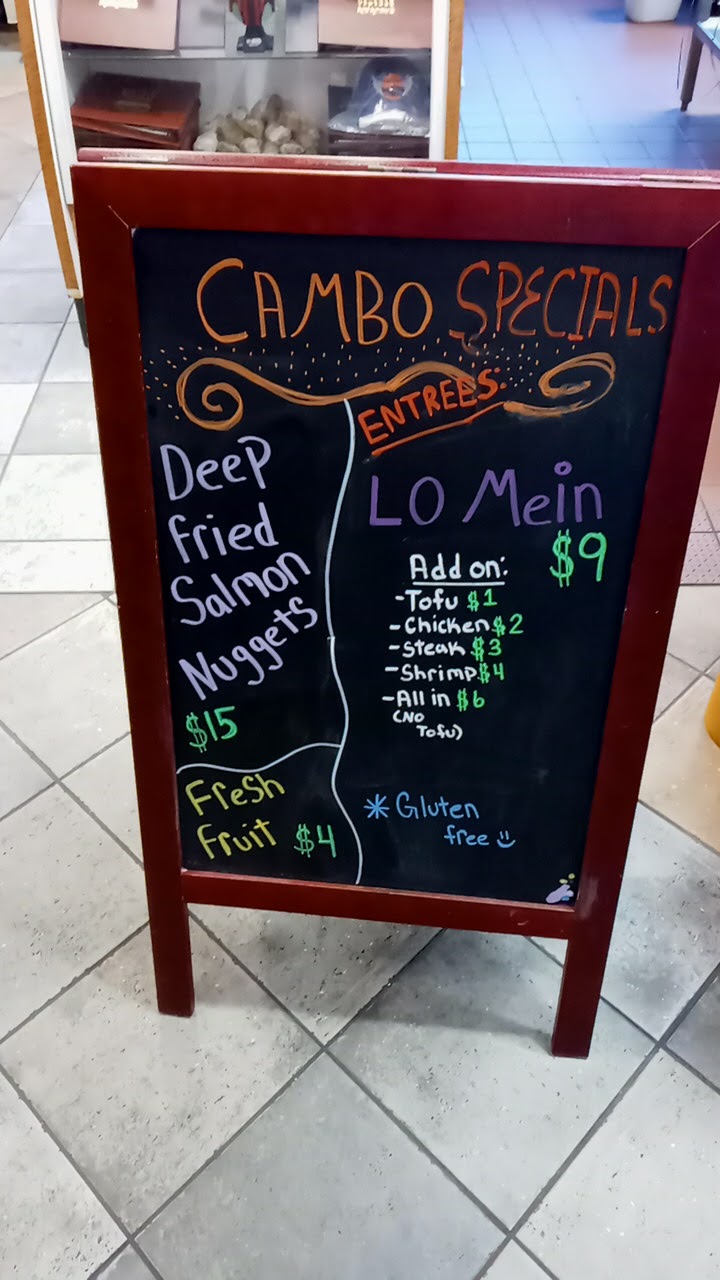 CAMBO SPECIALS
Deep
fried
Salmon
Nuggets
$15
Fresh
fruit $4
ENTREES:
LO Mein
$9
Add on:
-Tofu $1
-Chicken $2
-Steak $3
-Shrimp $4
-All in $6
(NO
Tofu)
* Gluten
free